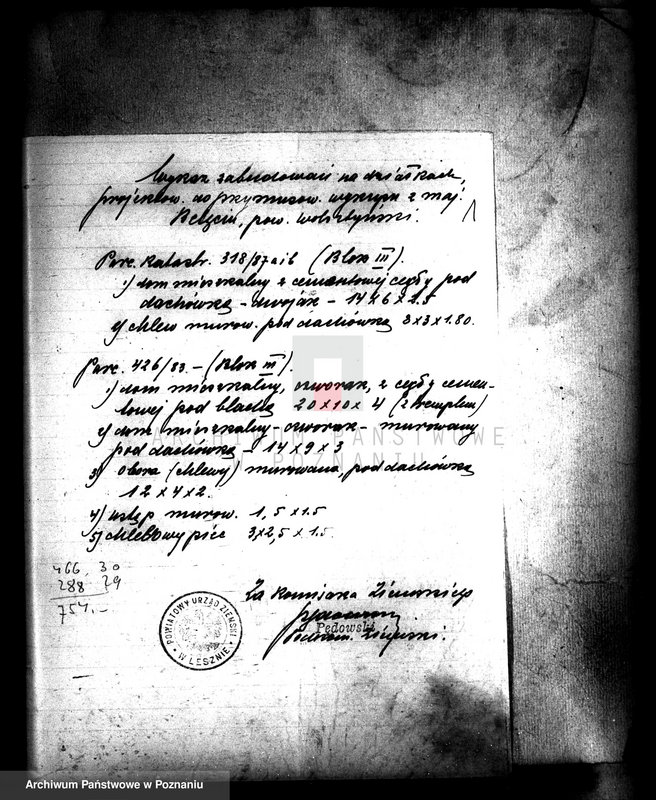 Wykaz zabudowań na działkach,
projektow. do przymusow. wykupu z maj.
Bełęcin, pow. wolsztyński.
Parc. Katastr. 318/37 a i b (Blok III).
1) dom mieszkalny z cementowej cegły pod
dachówką – dwojak – 14 x 6 x 2.5
2) chlew murow. pod dachówką 3x3x1.80.
Parc. 426/83. – (Blok III).
1) dom mieszkalny, czworak, z cegły cemen-
towej pod blachą 20x10x 4 (z tremplem)
2) dom mieszkalny – czworak – murowany
pod dachówką – 14 x 9 x 3
3) obora (chlewy) murowana, pod dachówką
12 x 4 x 2.
4) ustęp murow. 1,5 x 1.5
5) chlebowy piec 3x2,5 x 1.5
466, 30
288, 29
754,–
Za Komisarza Ziemskiego
Pędowski
Podkom. Ziemski.
POWIATOWY URZĄD ZIEMSKI
W LESZNIE
ARCHIWUM PAŃSTWOWE
W POZNANIU
Archiwum Państwowe w Poznaniu